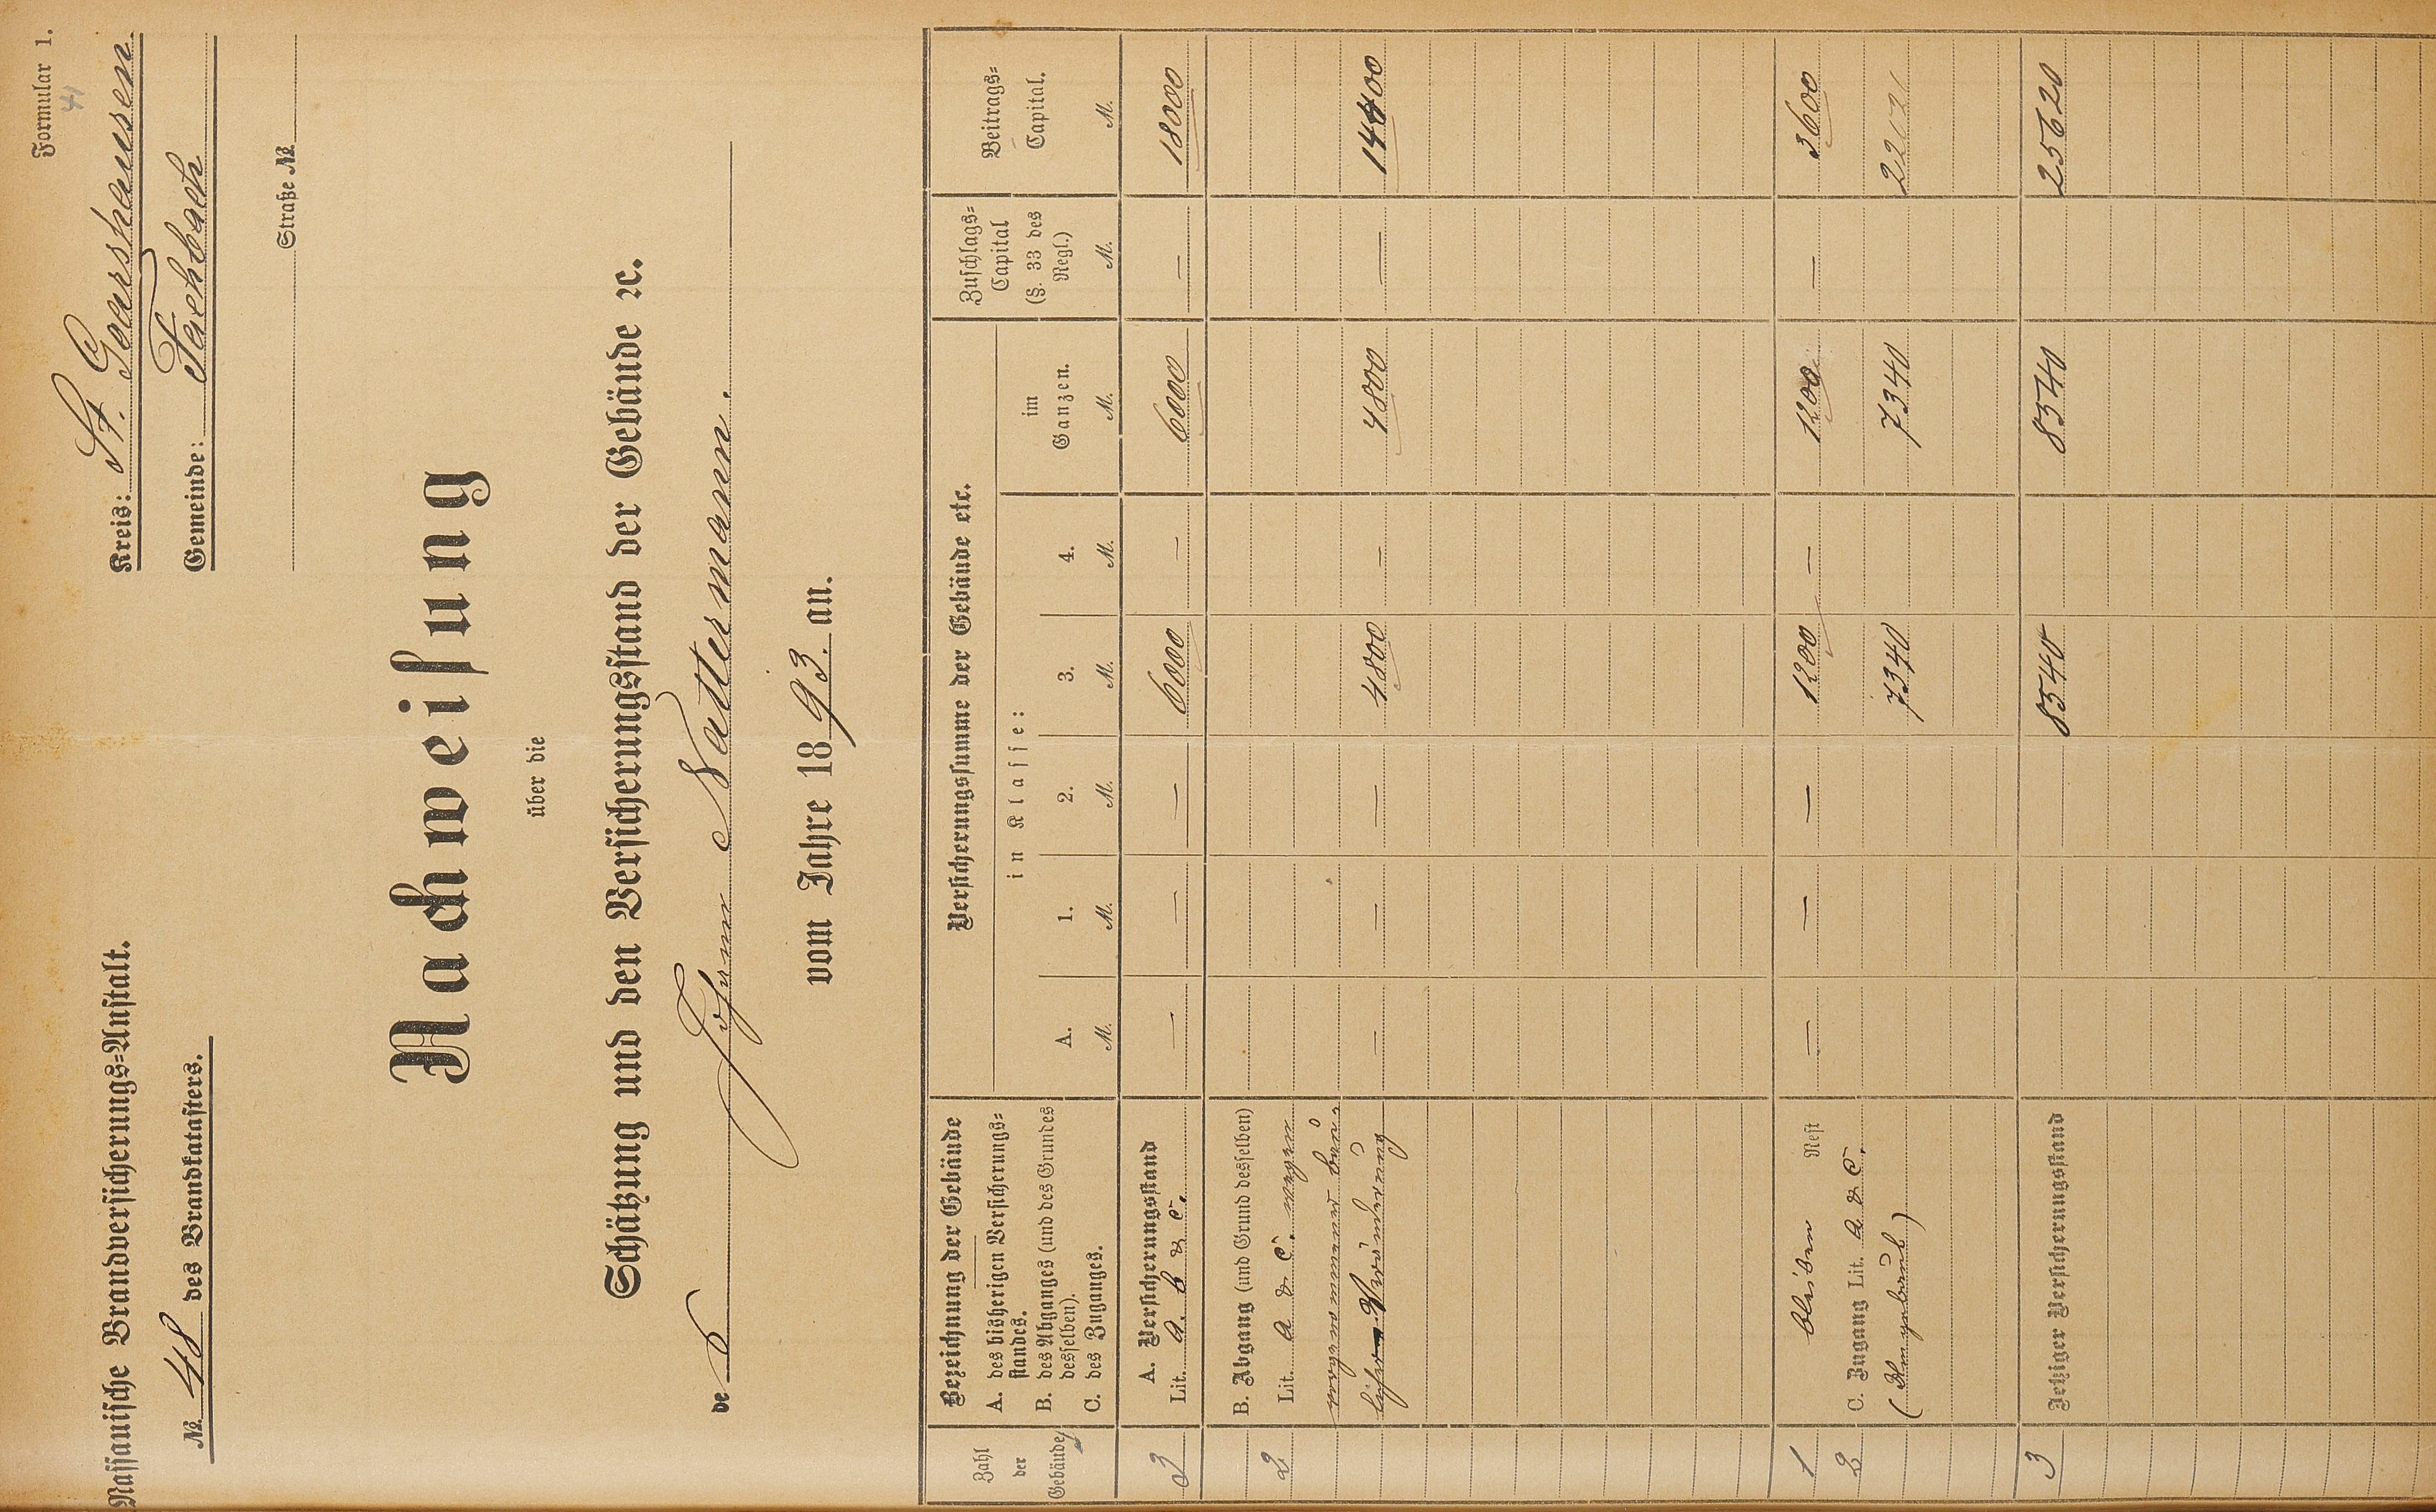 Formular 1.
41
Nassauische Brandversicherungs=Anstalt.
Kreis: St. Goarshausen
№ 48 des Brandkatasters.
Gemeinde: Fachbach
Straße №
Nachweisung
über die
Schätzung und den Versicherungsstand der Gebäude ꝛc.
des Johann Nattermann.
vom Jahre 1893. an.
Zahl der Gebäude
Bezeichnung der Gebäude
A. des bisherigen Versicherungs=
standes.
B. des Abganges (und des Grundes
desselben).
C. des Zuganges.
Versicherungssumme der Gebäude etc.
in Klasse:
A. 1. 2. 3. 4. im Ganzen.
M. M. M. M. M. M.
Zuschlags=
Capital
(§. 33 des
Regl.)
M.
Beitrags=
Capital.
M.
A. Versicherungsstand
3 Lit. a. b & c. — — — 6000 — 6000 — 18000
B. Abgang (und Grund desselben)
2 Lit. a & c. wegen
vorgenommener bau=
licher Veränderung — — — 4800 — 4800 — 14400
1 bleiben Rest — — — 1200 — 1200 — 3600
2 C. Zugang Lit. a & c.
7340 7340
3 Jetziger Versicherungsstand 8540 8540 25620